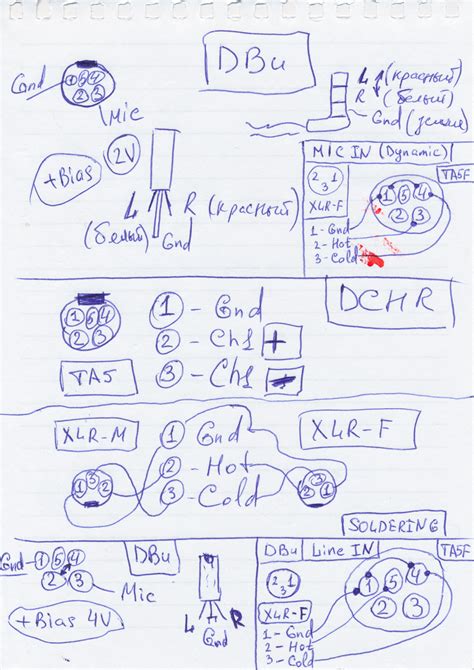 DBu
Gnd
1 5 4
2 3
Mic
L (красный)
R (белый)
Gnd (земля)
+Bias 2V
L R (красный)
(белый) Gnd
MIC IN (Dynamic)
TA5F
2 1
3
XLR-F
1 5 4
2 3
1- Gnd
2- Hot
3- Cold
DCHR
1 5 4
2 3
TA5
1 - Gnd
2 - Ch1 +
3 - Ch1 -
XLR-M
1 Gnd
2 - Hot
3 - Cold
XLR-F
SOLDERING
Gnd 1 5 4
2 3
Mic
DBu
+Bias 4V
L R
Gnd
DBu Line IN
TA5F
2 1
3
XLR-F
1 - Gnd
2 - Hot
3 - Cold
1 5 4
2 3